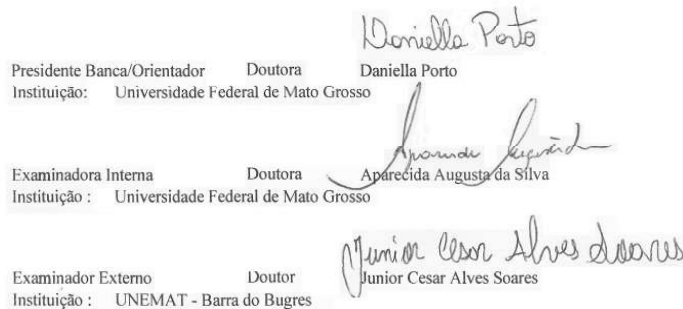 Daniella Porto
Presidente Banca/Orientador Doutora Daniella Porto
Instituição: Universidade Federal de Mato Grosso
Examinadora Interna Doutora Aparecida Augusta da Silva
Instituição : Universidade Federal de Mato Grosso
Junior Cesar Alves Soares
Examinador Externo Doutor Junior Cesar Alves Soares
Instituição : UNEMAT - Barra do Bugres